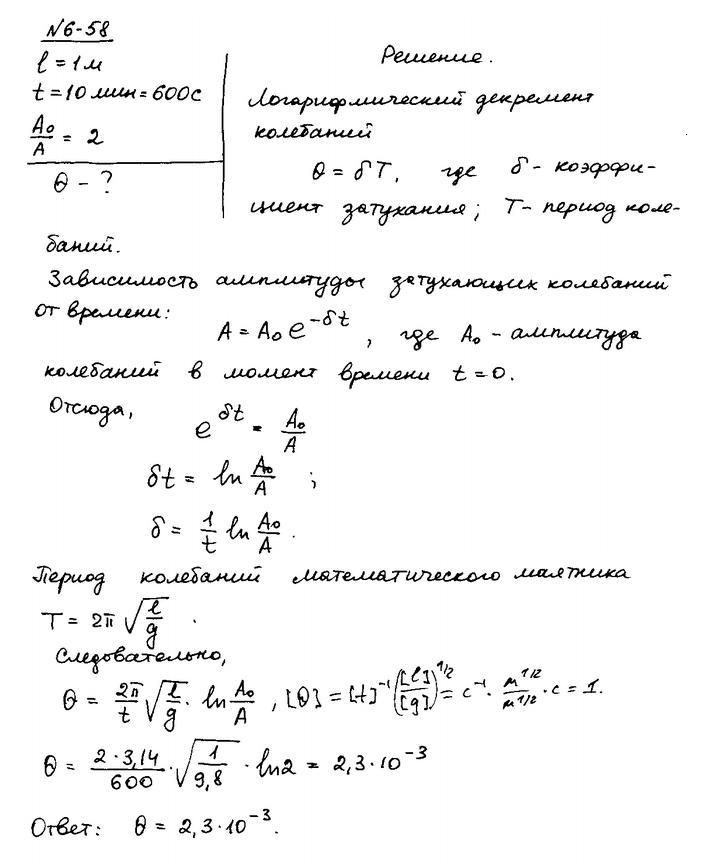 №6-58
l = 1м
t = 10 мин = 600с
A₀/A = 2
θ - ?
Решение.
Логарифмический декремент
колебаний
θ = δT, где δ - коэффи-
циент затухания; T - период коле-
баний.
Зависимость амплитуды затухающих колебаний
от времени:
A = A₀e^(-δt), где A₀ - амплитуда
колебаний в момент времени t = 0.
Отсюда,
e^(δt) = A₀/A
δt = ln A₀/A ;
δ = 1/t ln A₀/A .
Период колебаний математического маятника
T = 2π √(l/g) .
Следовательно,
θ = 2π/t √(l/g) · ln A₀/A , [θ] = [t]⁻¹ ([l]/[g])^(1/2) = с⁻¹ · м^(1/2)/м^(1/2) · с = 1.
θ = (2·3,14)/600 · √(1/9,8) · ln2 = 2,3·10⁻³
Ответ: θ = 2,3·10⁻³.